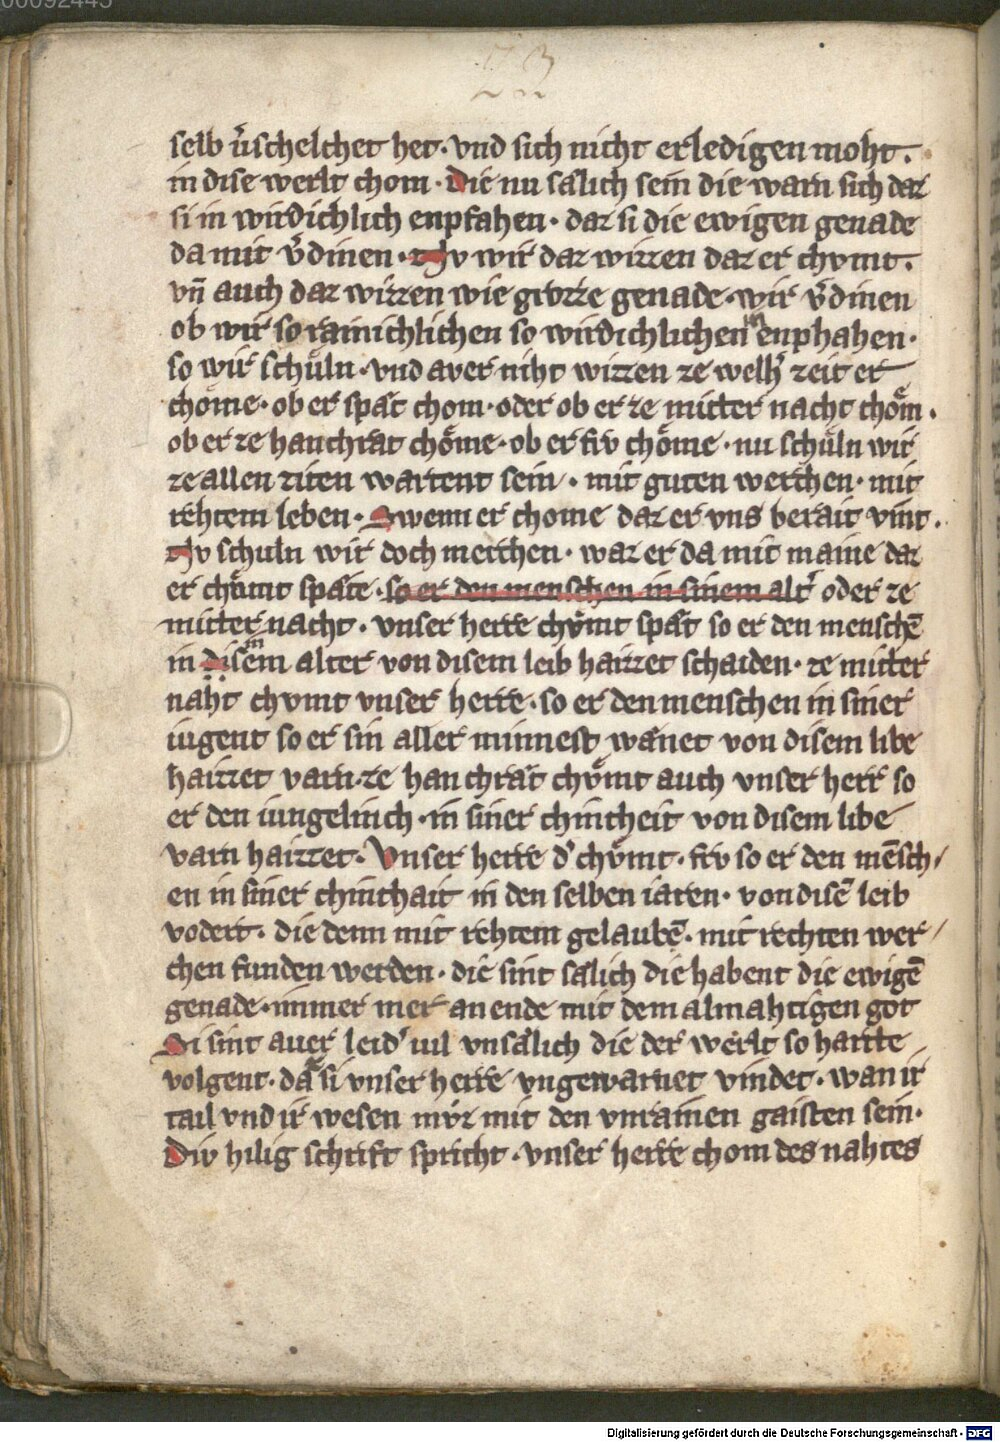 00092445
73
selb v͛schelchet het · vnd sich nicht erledigen moht ·
in dise werlt chom · Die nu sälich sein die warn sich daz
si in wirdichlich enpfahen · daz si die ewigen genade
da mit v͛dinen · Nv wir daz wizzen daz er chvmt ·
vn̄ auch daz wizzen wie grozze genade · wir v͛dinen
ob wir so rainichlichen so wirdichlichen in enphahen ·
so wir schuͤln · vnd aver niht wizzen ze welh͛ zeit er
choͤme · ob er spat chom · oder ob er ze mitter nacht choͤm ·
ob er ze hanchrat choͤme · ob er frv choͤme · nu schuͤln wir
ze allen ziten wartent sein · mit guten werchen · mit
rehtem leben · Swenn er chome daz er vns berait vint ·
Nv schuln wir doch merchen · waz er da mit maine daz
er chuͤmt späte · so er den menschen in sinem alt͛ oder ze
mitter nacht · vnser herre chvͤmt spät so er den menschē
in disem in alter von disem leib haizzet schaiden · ze mitter
naht chvmt vnser herre · so er den menschen in siner
iugent so er sin aller minnest wänet von disem libe
haizzet varn · ze hanchrät chvͤmt auch vnser herr so
er den iungelinch · in siner chintheit von disem libe
varn haizzet · Vnser herre d͛ chvͤmt · frv so er den mēsch/
en in siner chinthait in den selben iaren · von disē leib
vodert · die denn mit rehtem gelaubē · mit rechten wer/
chen funden werden · die sint sälich die habent die ewigē
genade · immer mer an ende mit dem almahtigen got
Si sint auer leid͛ uil vnsälich die der werlt so harte
volgent · daz si vnser herre vngewarnet vindet · wan ir
tail vnd ir wesen mvͤz mit den vnrainen gaisten sein ·
Div hilig schrift spricht · vnser herre chom des nahtes
Digitalisierung gefördert durch die Deutsche Forschungsgemeinschaft - DFG